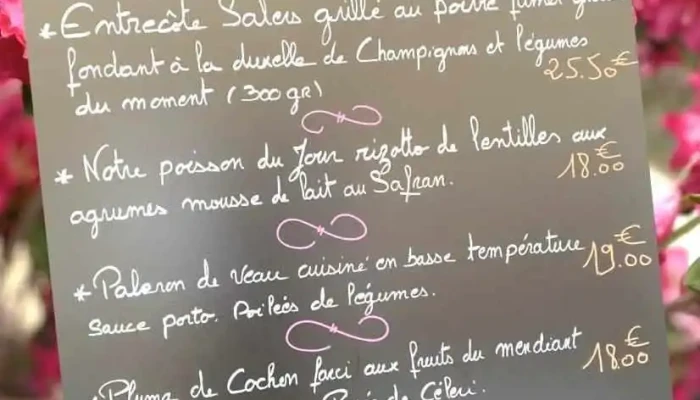 * Entrecôte Salers grillé au poivre fumé
fondant à la duxelle de Champignons et légumes
du moment (300gr) 25.50€
* Notre poisson du Jour rizotto de lentilles aux
agrumes mousse de lait au Safran. 18.00€
* Paleron de Veau cuisiné en basse température
Sauce porto. Poilées de légumes. 19.00€
* Pluma de Cochon farci aux fruits du mendiant
de Céleri. 18.00€